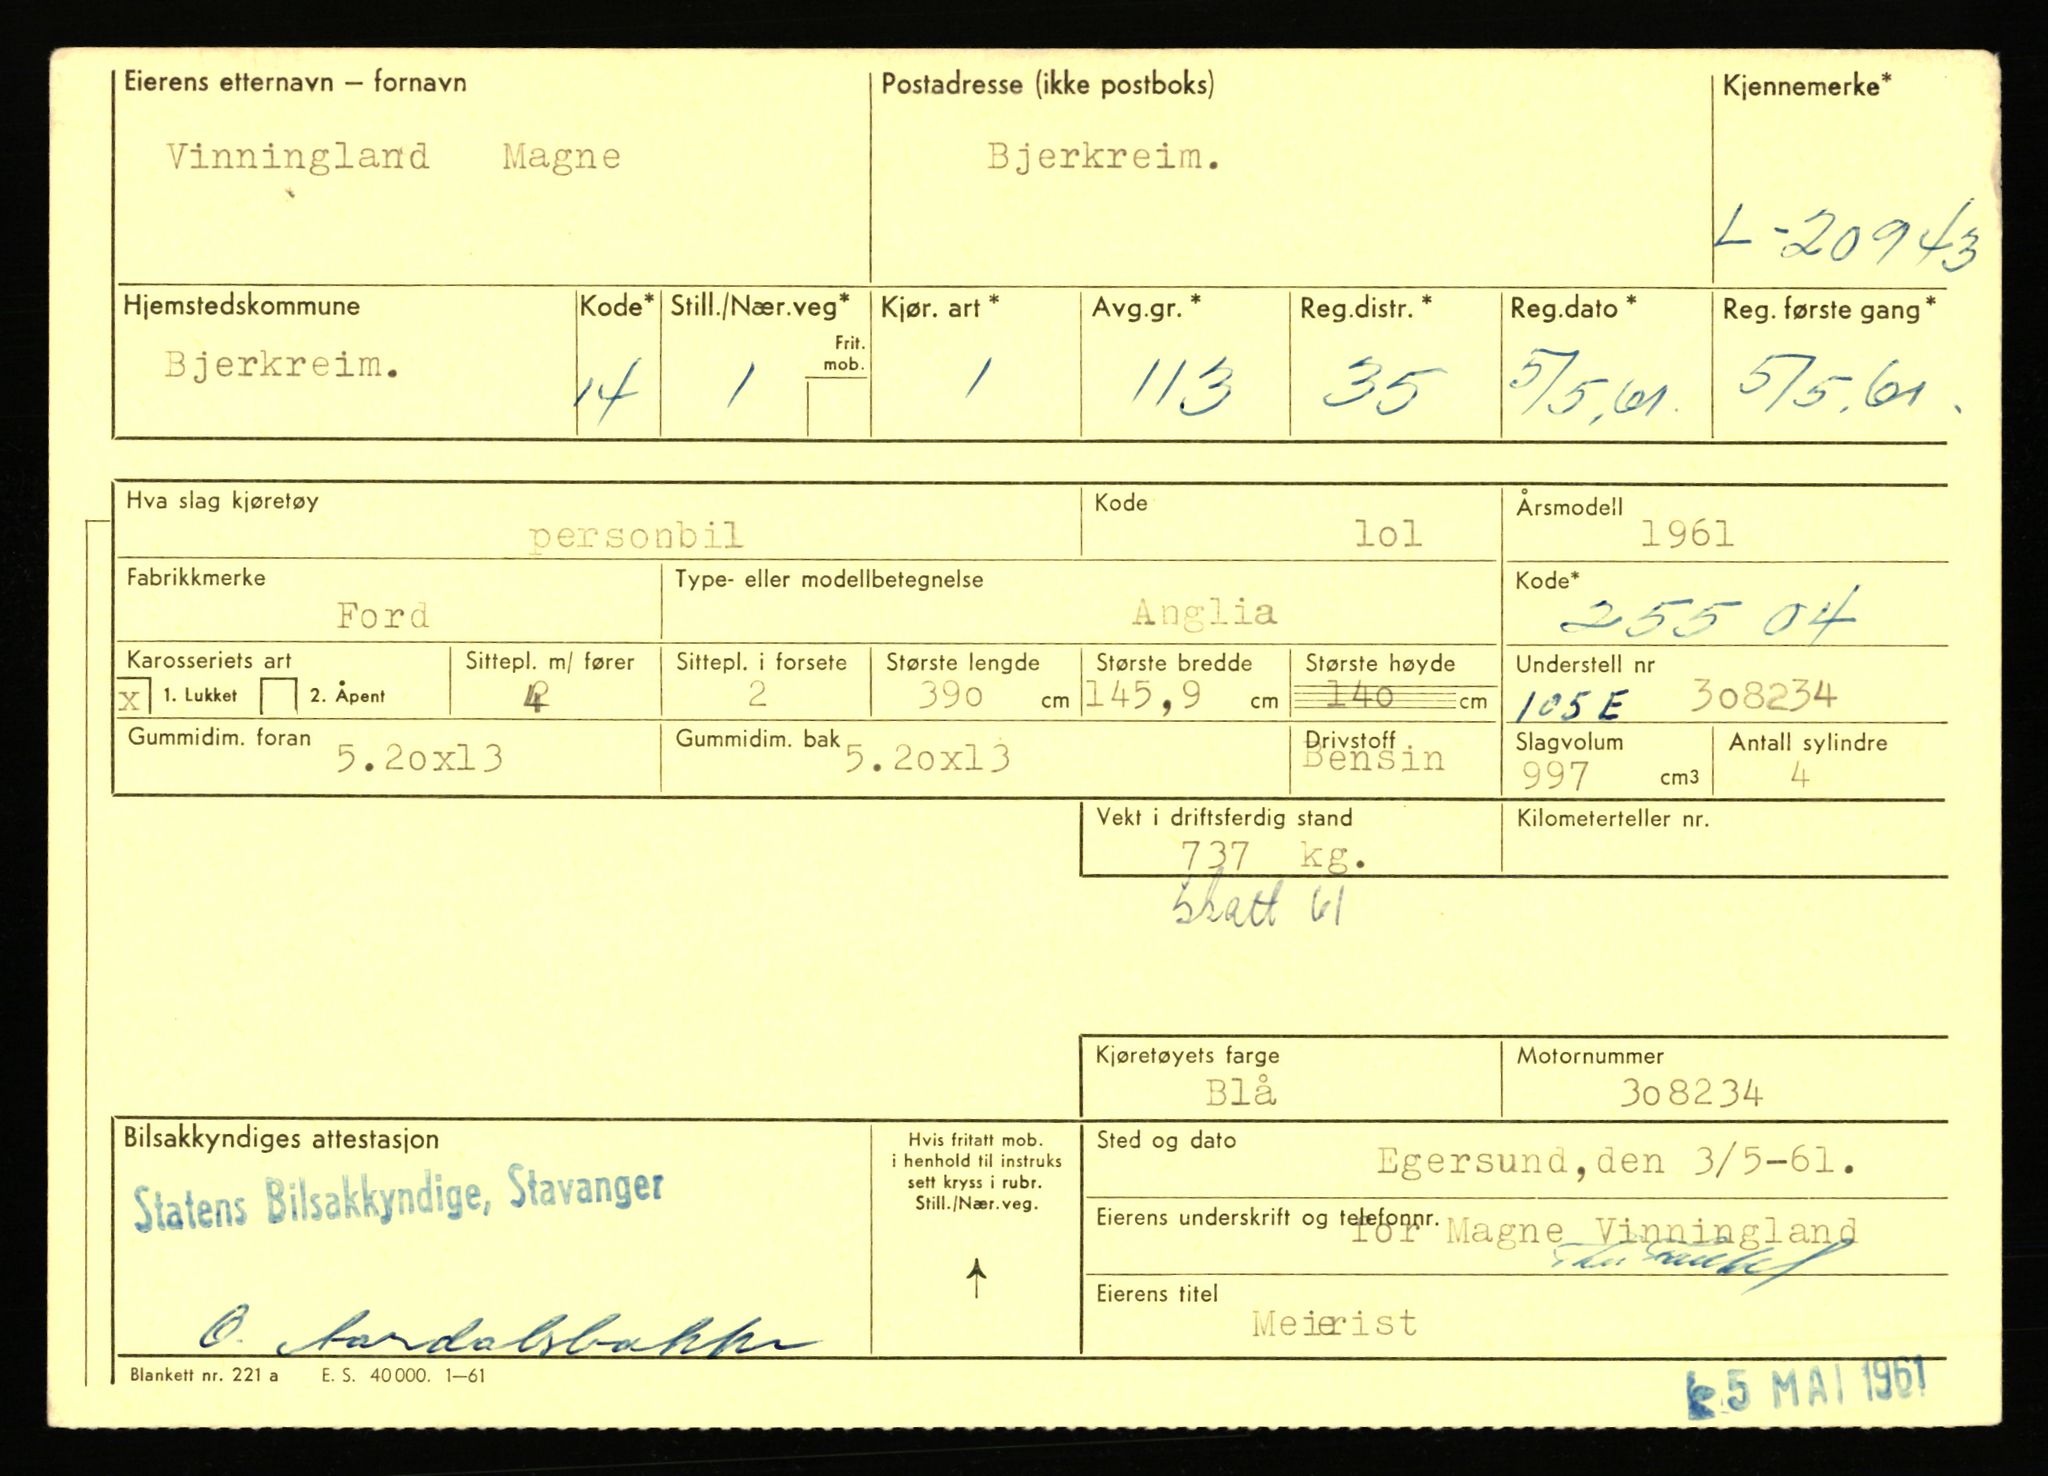 Eierens etternavn – fornavn Postadresse (ikke postboks) Kjennemerke*
Vinningland Magne Bjerkreim.
L-20943
Hjemstedskommune Kode* Still./Nær.veg* Kjør. art* Avg.gr.* Reg.distr.* Reg.dato* Reg. første gang*
Frit.
mob.
Bjerkreim. 14 1 1 113 35 5/5.61. 5/5.61.
Hva slag kjøretøy Kode Årsmodell
personbil lol 1961
Fabrikkmerke Type- eller modellbetegnelse Kode*
Ford Anglia 255 04
Karosseriets art Sittepl. m/ fører Sittepl. i forsete Største lengde Største bredde Største høyde Understell nr
x 1. Lukket 2. Åpent 4 2 390 cm 145,9 cm 140 cm 105E 308234
Gummidim. foran Gummidim. bak Drivstoff Slagvolum Antall sylindre
5.2ox13 5.2ox13 Bensin 997 cm3 4
Vekt i driftsferdig stand Kilometerteller nr.
737 kg.
skatt 61
Kjøretøyets farge Motornummer
Blå 308234
Bilsakkyndiges attestasjon Hvis fritatt mob. Sted og dato
i henhold til instruks
sett kryss i rubr.
Still./Nær.veg.
Egersund,den 3/5-61.
Statens Bilsakkyndige, Stavanger
Eierens underskrift og telefonnr.
for Magne Vinningland
Eierens titel
Meierist
O. Aardalsbakke
Blankett nr. 221 a E. S. 40 000. 1–61
5 MAI 1961